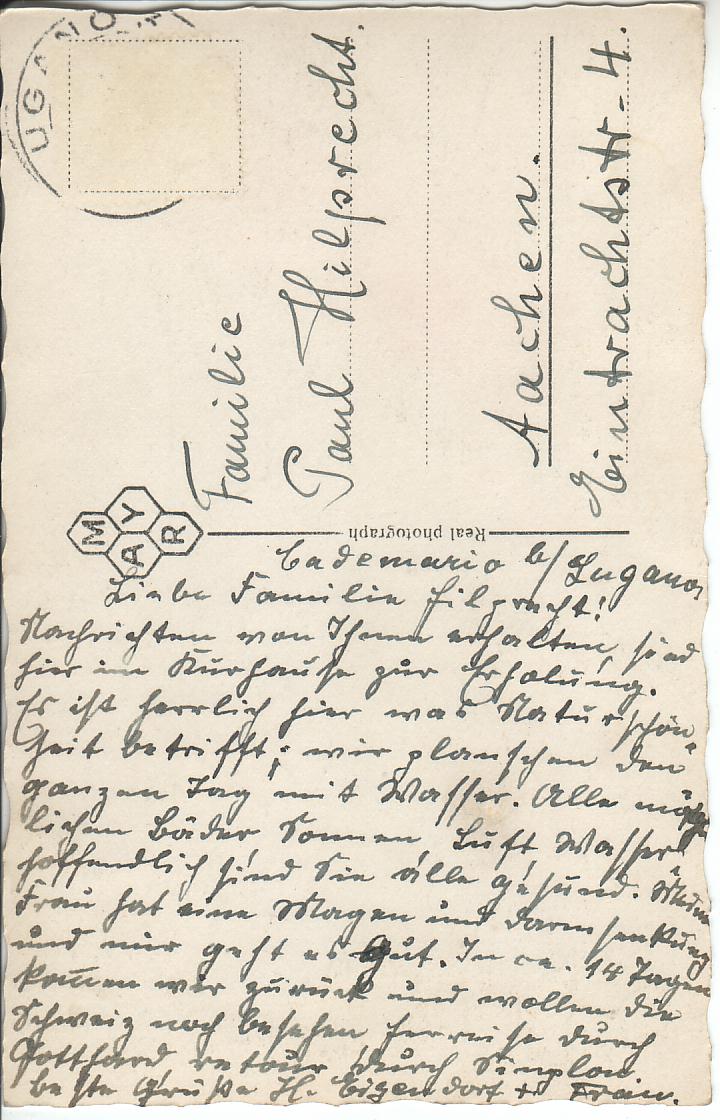 UGANO
Familie
Paul Hilprecht.
Aachen.
Eintrachtstr-4.
MAYR
Real photograph
Cademario b/Lugano,
Liebe Familie Hilprecht!
Nachrichten von Ihnen erhalten, sind
hier im Kurhause zur Erholung.
Es ist herrlich hier was Naturschön-
heit betrifft; wir planschen den
ganzen Tag mit Wasser. Alle mög-
lichen Bäder Sonnen, Luft Wasser
hoffendlich sind Sie alle gesund. Meine
Frau hat eine Magen und darmsenkung
und mir geht es Gut. In ca. 14 Tagen
kom̄en wir zurück und wollen die
Schweiz noch besehen herreise durch
Gotthard retour durch Simplon
beste Grüße H. Eigendorf u Frau.